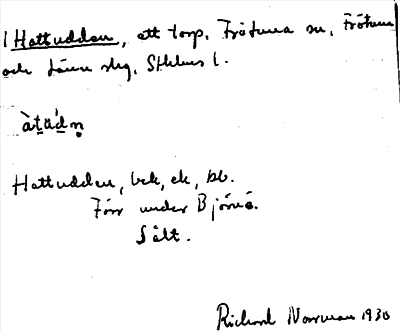 1 Hattudden, ett torp, Frötuna sn, Frötuna
och Länna slg, Sthlms l.
àtúdn̥
Hattudden, bek, ek, bb.
Förr under Björnö.
Sålt.
Richard Norrman 1930